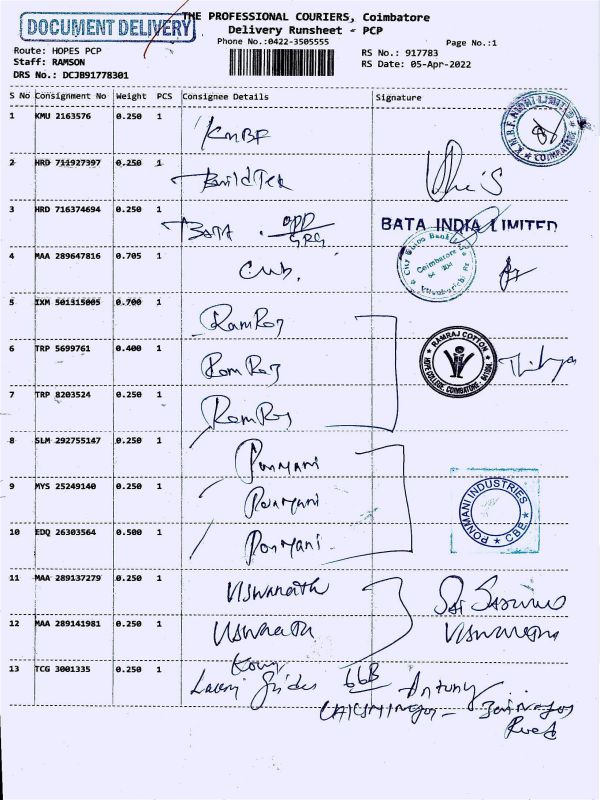 DOCUMENT DELIVERY
THE PROFESSIONAL COURIERS, Coimbatore
Delivery Runsheet - PCP
Phone No.:0422-3505555
Page No.:1
Route: HOPES PCP
Staff: RAMSON
DRS No.: DCJB91778301
RS No.: 917783
RS Date: 05-Apr-2022
S No Consignment No Weight PCS Consignee Details Signature
1 KMU 2163576 0.250 1 KNBF
K.N.B.F. NIDHI LIMITED
COIMBATORE
2 HRD 711927397 0.250 1 BuildTek
3 HRD 716374694 0.250 1 BATA OPP GRG
BATA INDIA LIMITED
4 MAA 289647816 0.705 1 CUB.
City Union Bank
Coimbatore
5 IXM 501315005 0.700 1 RamRaj
6 TRP 5699761 0.400 1 RamRaj
RAMRAJ COTTON
HOPE COLLEGE, COIMBATORE
7 TRP 8203524 0.250 1 RamRaj
8 SLM 292755147 0.250 1 Ponmani
9 MYS 25249140 0.250 1 Ponmani
PONMANI INDUSTRIES
CBE
10 EDQ 26303564 0.500 1 Ponmani
11 MAA 289137279 0.250 1 Viswanath
12 MAA 289141981 0.250 1 Viswanath
13 TCG 3001335 0.250 1 66B Antony